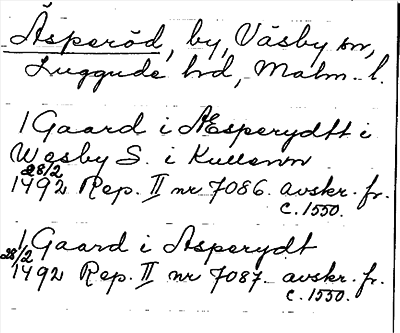 Äsperöd, by, Väsby sn,
Luggude hd, Malm. l.
1 Gaard i Æsperydtt i
Wesby S. i Kullenn
28/2
1492 Rep. II nr 7086. avskr. fr.
c. 1550.
1 Gaard i Asperydt
28/2
1492 Rep. II nr 7087. avskr. fr.
c. 1550.